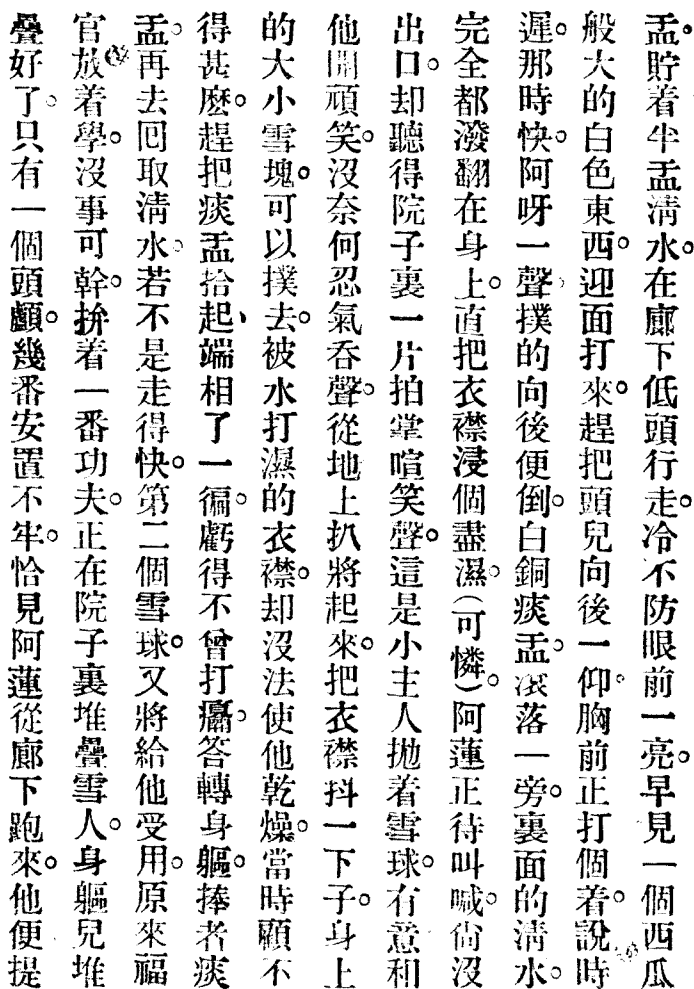 盂。貯着半盂淸水。在廊下低頭行走。冷不防眼前一亮。早見一個西瓜
般大的白色東西。迎面打來。趕把頭兒向後一仰。胸前正打個着。說時
遲。那時快。阿呀一聲。撲的向後便倒。白銅痰盂。滾落一旁。裏面的淸水。
完全都潑翻在身上。直把衣襟浸個盡濕。(可憐。)阿蓮正待叫喊。尙沒
出口。却聽得院子裏一片拍掌喧笑聲。這是小主人拋着雪球。有意和
他開頑笑。沒奈何忍氣吞聲。從地上扒將起來。把衣襟抖一下子。身上
的大小雪塊。可以撲去。被水打濕的衣襟。却沒法使他乾燥。當時顧不
得甚麽。趕把痰盂拾起、端相了一徧。虧得不曾打癟。答轉身軀。捧者痰
盂。再去囘取淸水。若不是走得快。第二個雪球。又將給他受用。原來福
官放着學。沒事可幹。拚着一番功夫。正在院子裏堆疊雪人。身軀兒堆
疊好了。只有一個頭顱。幾番安置不牢。恰見阿蓮從廊下跑來。他便提